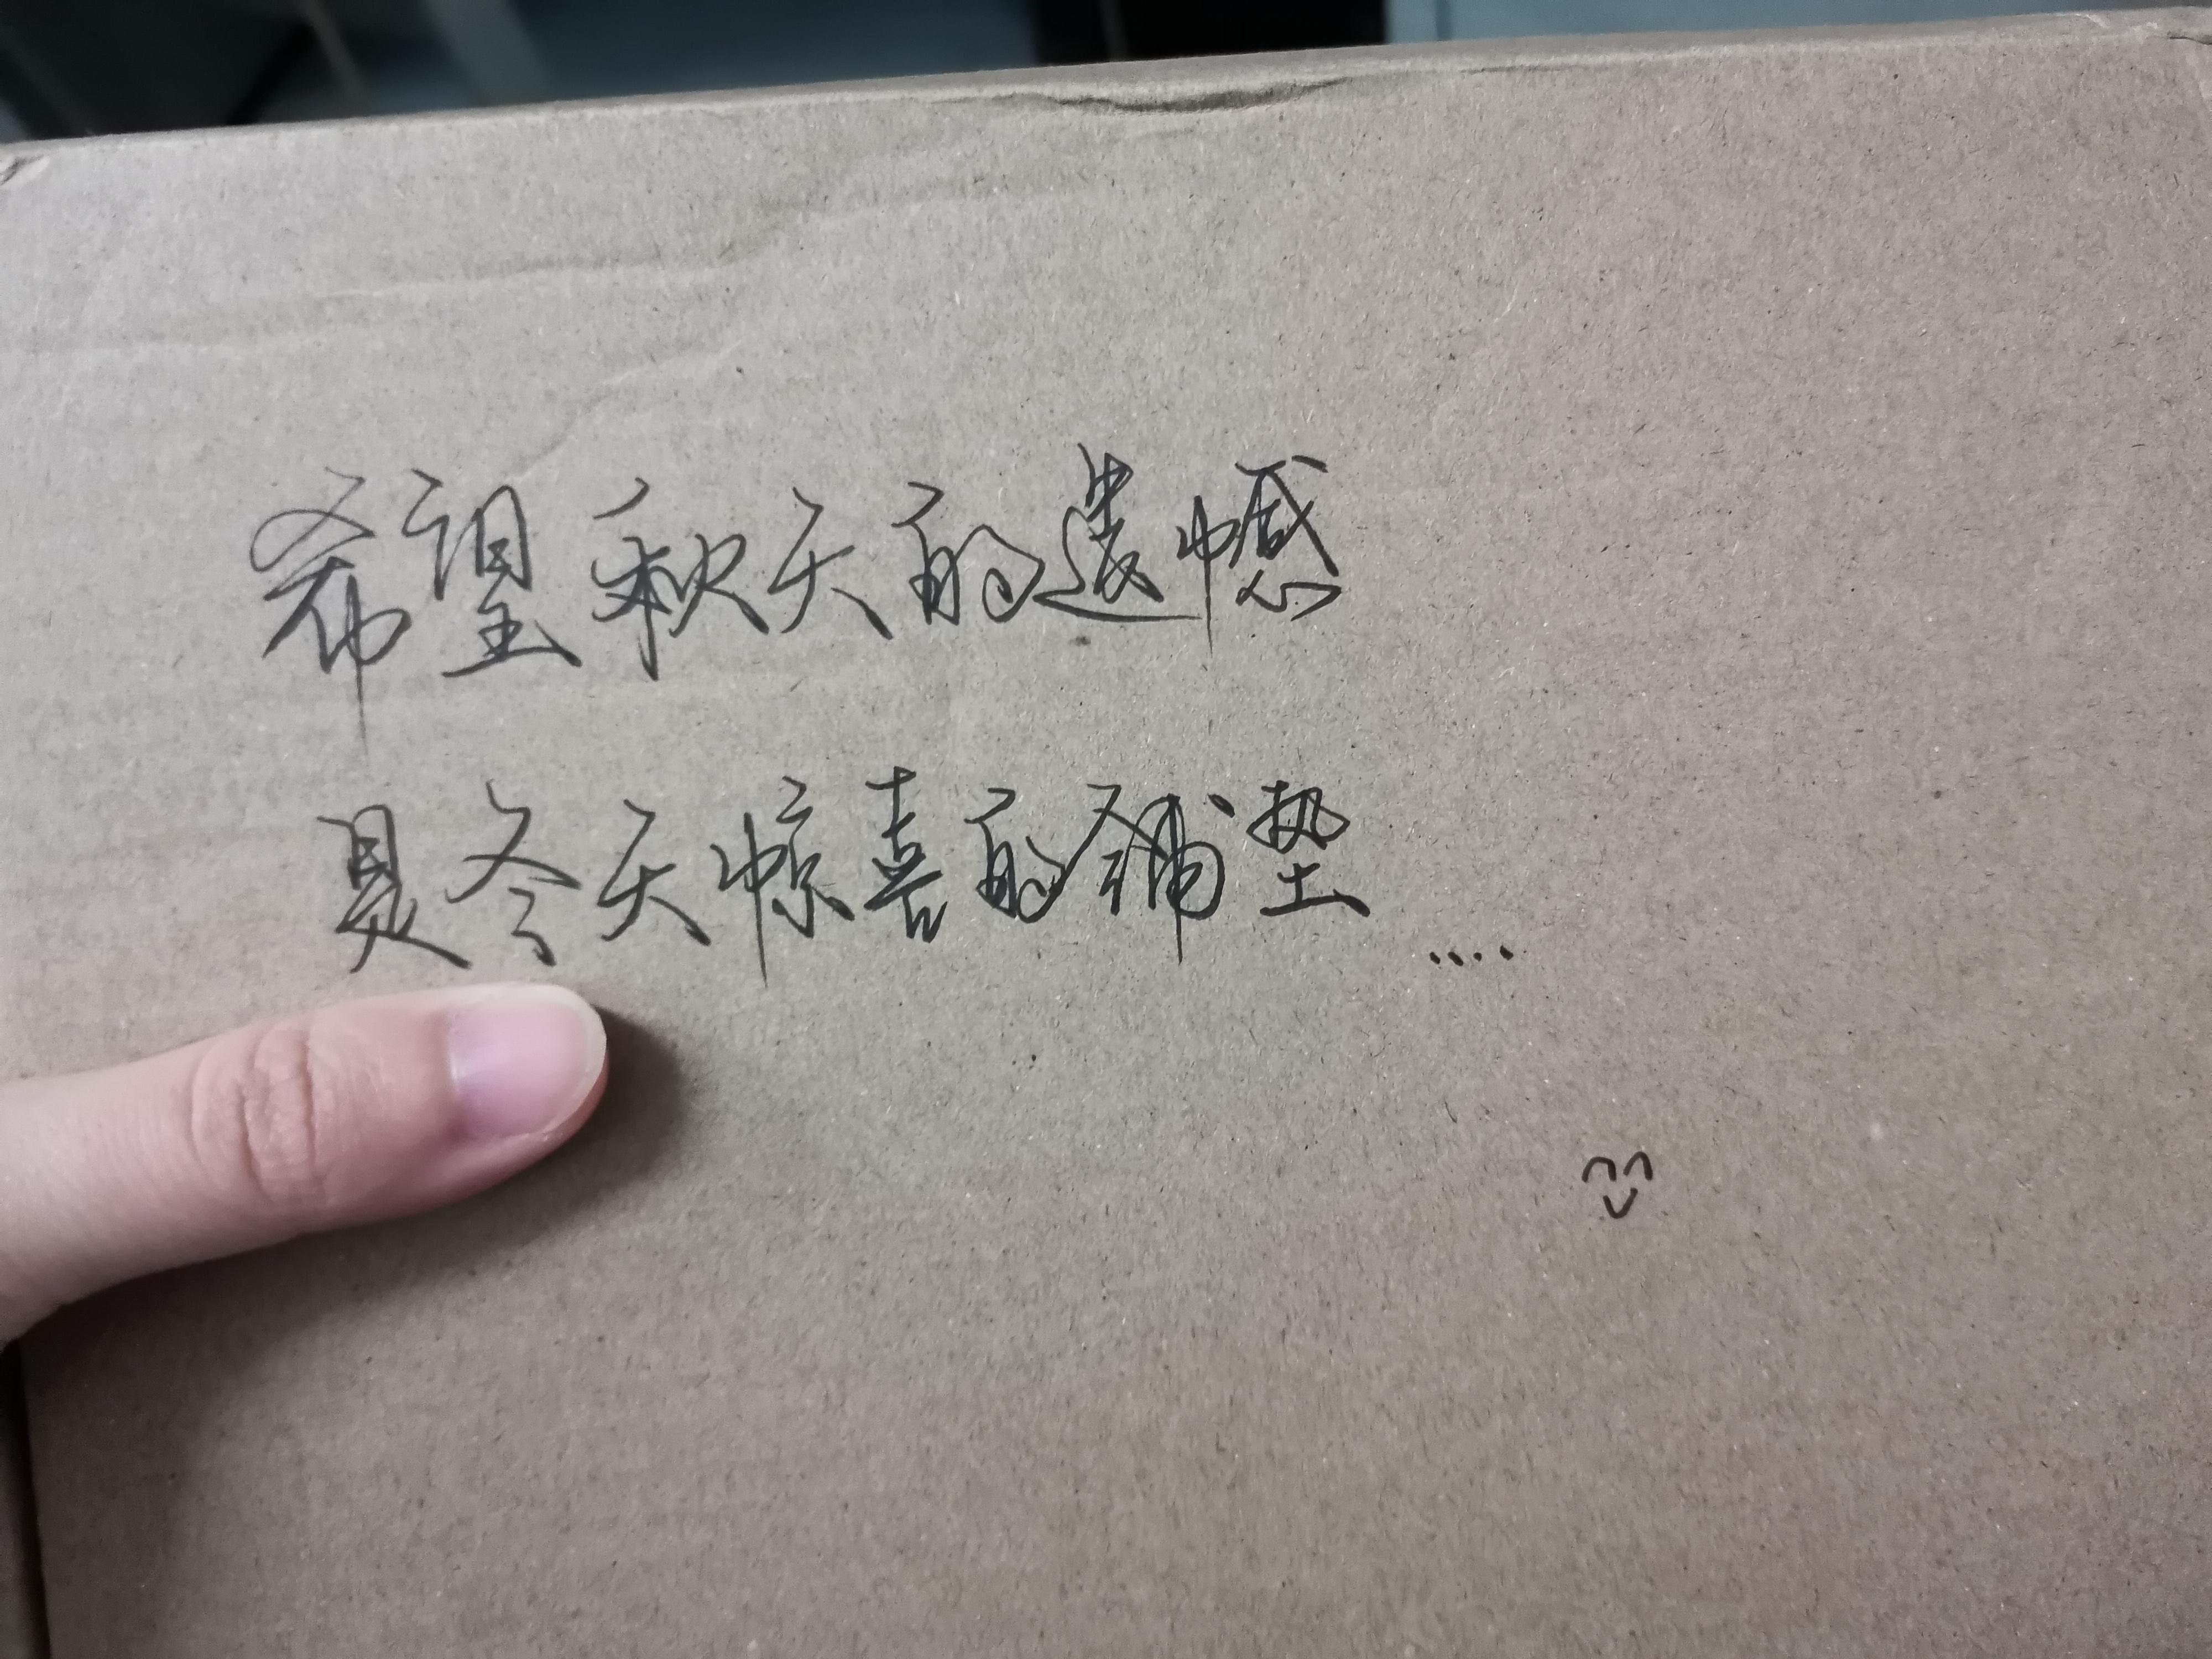 希望秋天的遗憾
是冬天惊喜的铺垫....